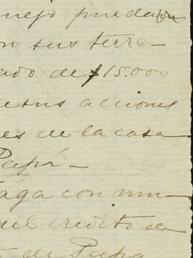 nejo puedan
on sus terre-
ado de $15.000
e sus acciones
es de la casa
Papá-
aga con mu-
el credito de
de Papa